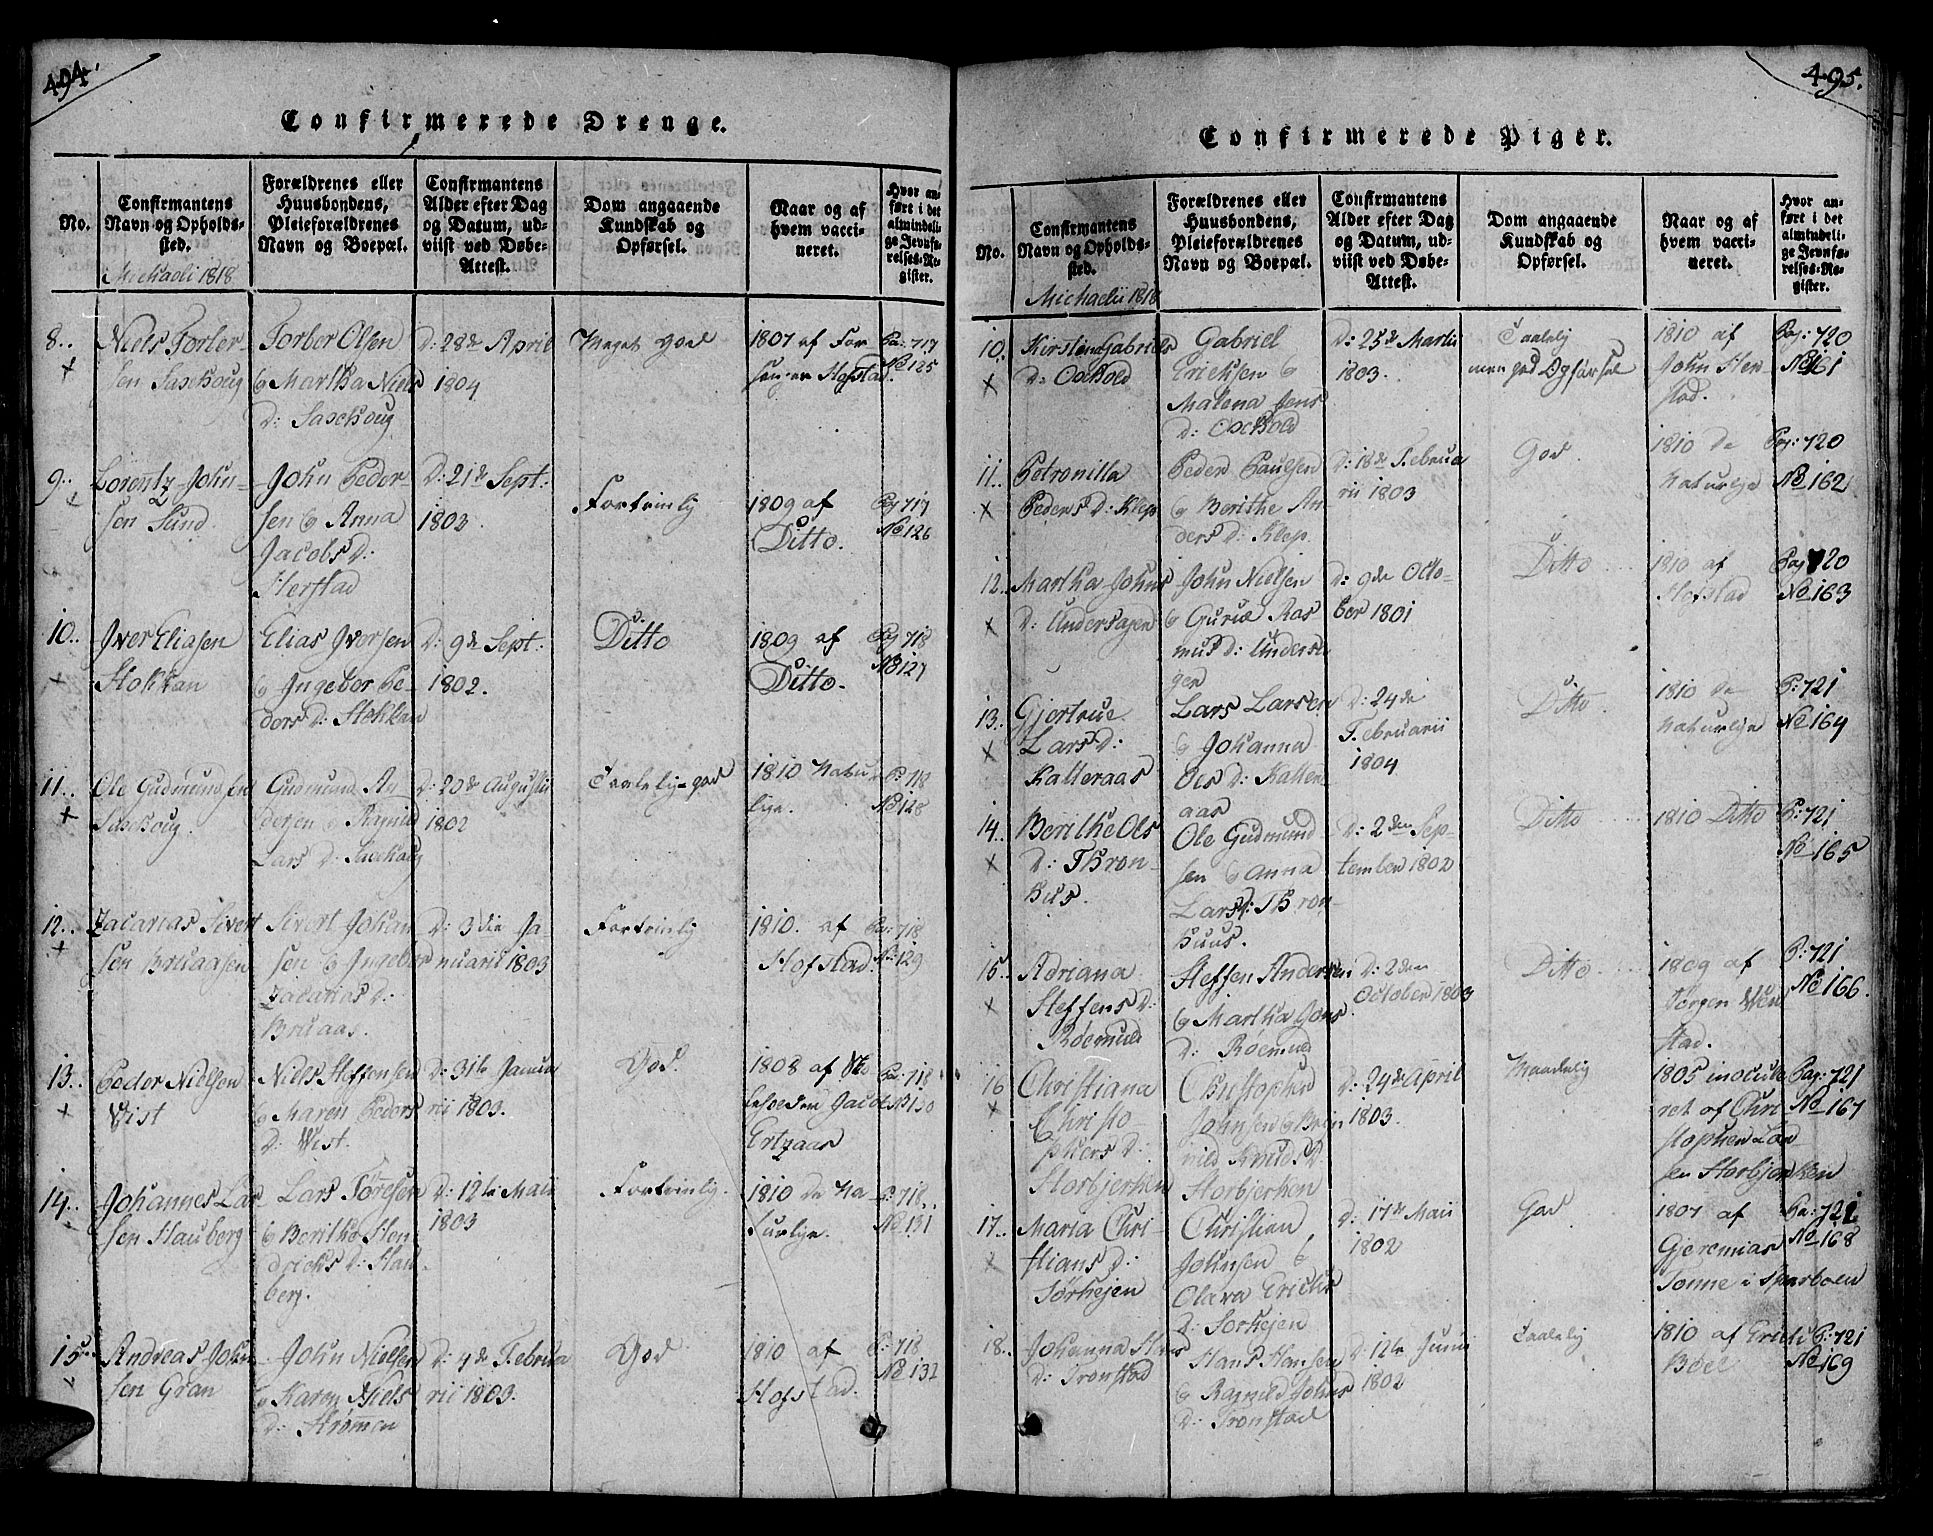 494.
Confirmerede Drenge.
No.
Confirmantens
Navn og Opholds-
sted.
Forældrenes eller
Huusbondens,
Pleieforældrenes
Navn og Boepæl.
Confirmantens
Alder efter Dag
og Datum, ud-
viist ved Døbe-
Attest.
Dom angaaende
Kundskab og
Opførsel.
Naar og af
hvem vacci-
neret.
Hvor an-
ført i det
almindeli-
ge Jevnfø-
relses-Re-
gister.
Michaeli 1818
8..
Niels Torber-
sen Saxhoug
Torber Olsen
& Martha Niels
D: Saxhoug
D: 28de April
1804
Meget god
1807 af For
sanger Hofstad
Pa: 717
No 125
9..
Lorentz John-
sen Sund
John Peder-
sen & Anna
Jacobs D:
Herstad
D: 21de Sept:
1803.
Fortrinlig
1809 af
Ditto.
Pag 717
No 126
10..
Iver Eliasen
Stokkan
Elias Iversen
& Ingebor Pe-
ders D: Stokkan
D: 9de Sept:
1802.
Ditto
1809 af
Ditto.
Pag 718
No 127
11..
Ole Gudmundsen
Saxhoug.
Gudmund An
dersen & Ragnild
Lars D: Saxhoug
D: 20de Augustii
1802
Taalelig god
1810 Natur
lige.
P: 718
No 128
12..
Zacarias Sivert
sen Bruaasen
Sivert Johan
sen & Ingebor
Zacarias D:
Bruaas.
D: 3die Ja-
nuarii 1803
Fortrinlig
1810. af
Hofstad.
Pa: 718
No 129
13..
Peder Nielsen
Vist
Niels Steffensen
& Maren Peders
D: Vist.
D: 31te Janua
rii 1803.
God.
1808 af
Jacob
Ertzaas
Pa: 718
No 130
14..
Johannes Lar
sen Hauberg
Lars Tøresen
& Berithe Hen
drichs D: Hau
berg.
D: 12te Maii
1803
Fortrinlig.
1810 de Na
turlige.
P: 718..
No 131
15..
Andreas John
sen Gran
John Nielsen
& Karen Niels
D: Strømmen
D: 4de Februa
rii 1803.
God
1810 af
Hofstad.
P: 718
No 132
495.
Confirmerede Piger.
No.
Confirmantens
Navn og Opholds-
sted.
Forældrenes eller
Huusbondens,
Pleieforældrenes
Navn og Boepæl.
Confirmantens
Alder efter Dag
og Datum, ud-
viist ved Døbe-
Attest.
Dom angaaende
Kundskab og
Opførsel.
Naar og af
hvem vacci-
neret.
Hvor an-
ført i det
almindeli-
ge Jevnfø-
relses-Re-
gister.
Michaelii 1818
10.
Kirstina Gabriels
D: Oxhold
Gabriel
Ericksen &
Malena Jens
D: Oxhold
D: 25de Martii
1803.
Taalelig
men god Opførsel
1810 af
John Her-
stad.
Pag: 720
No 161
11..
Petronilla
Peders D: Klep
Peder Paulsen
& Berithe An
ders D: Klep.
D: 18de Februa
rii 1803
God
1810 de
Naturlige
Pag: 720
No 162
12..
Martha Johns
D: Undersagen
John Nielsen
& Guruæ Ras
mus D: Undersa
gen
D: 9de Octo-
ber 1801
Ditto
1810 af
Hofstad
Pag 720
No 163
13..
Gjertrue
Lars D:
Kalleraas
Lars Larsen
& Johanna
Ols D: Kaller
aas
D: 24de
Februarii
1804
Ditto.
1810 de
Naturlige
P: 721
No 164
14..
Berithe Ols
D: Thron-
hus.
Ole Gudmund
sen & Anna
Lars D: Thron
huus.
D: 2den Sep-
tember 1802
Ditto
1810 Ditto
P: 721
No 165
15.
Adriana
Steffens D:
Røemuld
Steffen Andersen
& Martha Jons
D: Roemuld
D: 2den
October 1803
Ditto
1809 af
Jørgen
stad.
P: 721
No 166.
16
Christiana
Christo
phers D:
Storbjerken
Christopher
Johnsen & Brin
nild Knuds D:
Storbjerken
D: 24de April
1803.
Maadelig
1805 inocule
ret af Chri
stopher John
sen Storbjerken
Pag: 721
No 167
17..
Maria Chri-
stians D:
Sørhejen
Christian
Johnsen &
Olava Erichs
D: Sorhejen
D: 17de Maii
1802
God
1807 af
Gjeremias
Tonne i Sparboen
Pa: 721
No 168
18..
Johanna Hans
D: Tronstad
Hans Hansen
& Ragnild Johns
D: Tronstad
D: 12te Junii
1802
Taalelig
1810 af Erich
Boel
P: 721
No 169